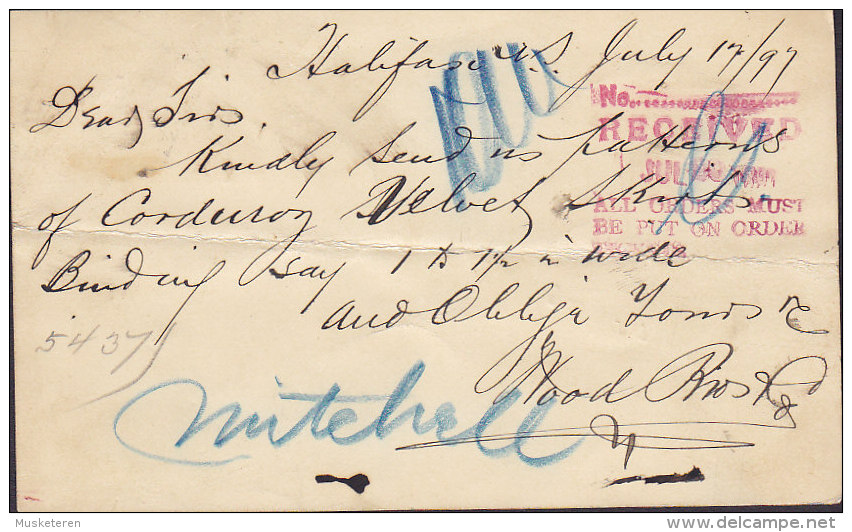 Halifax N.S. July 17/97
Dear Sirs.
Kindly send us patterns
of Corduroy Velvet Skirt
Binding say 1 to 1 1/2 in wide
and Oblige Yours &c
Wood Bros & Co
No.
RECEIVED
JUL
ALL ORDERS MUST
BE PUT ON ORDER
5437
Mitchell
Musketeren
delcampe.net